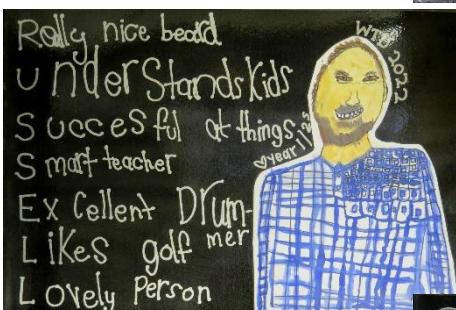 Rally nice beard
UnderStands Kids
Succesful at things.
Smart teacher
ExCellent Drum-
mer
Likes golf
Lovely Person
2022
year 1/2S